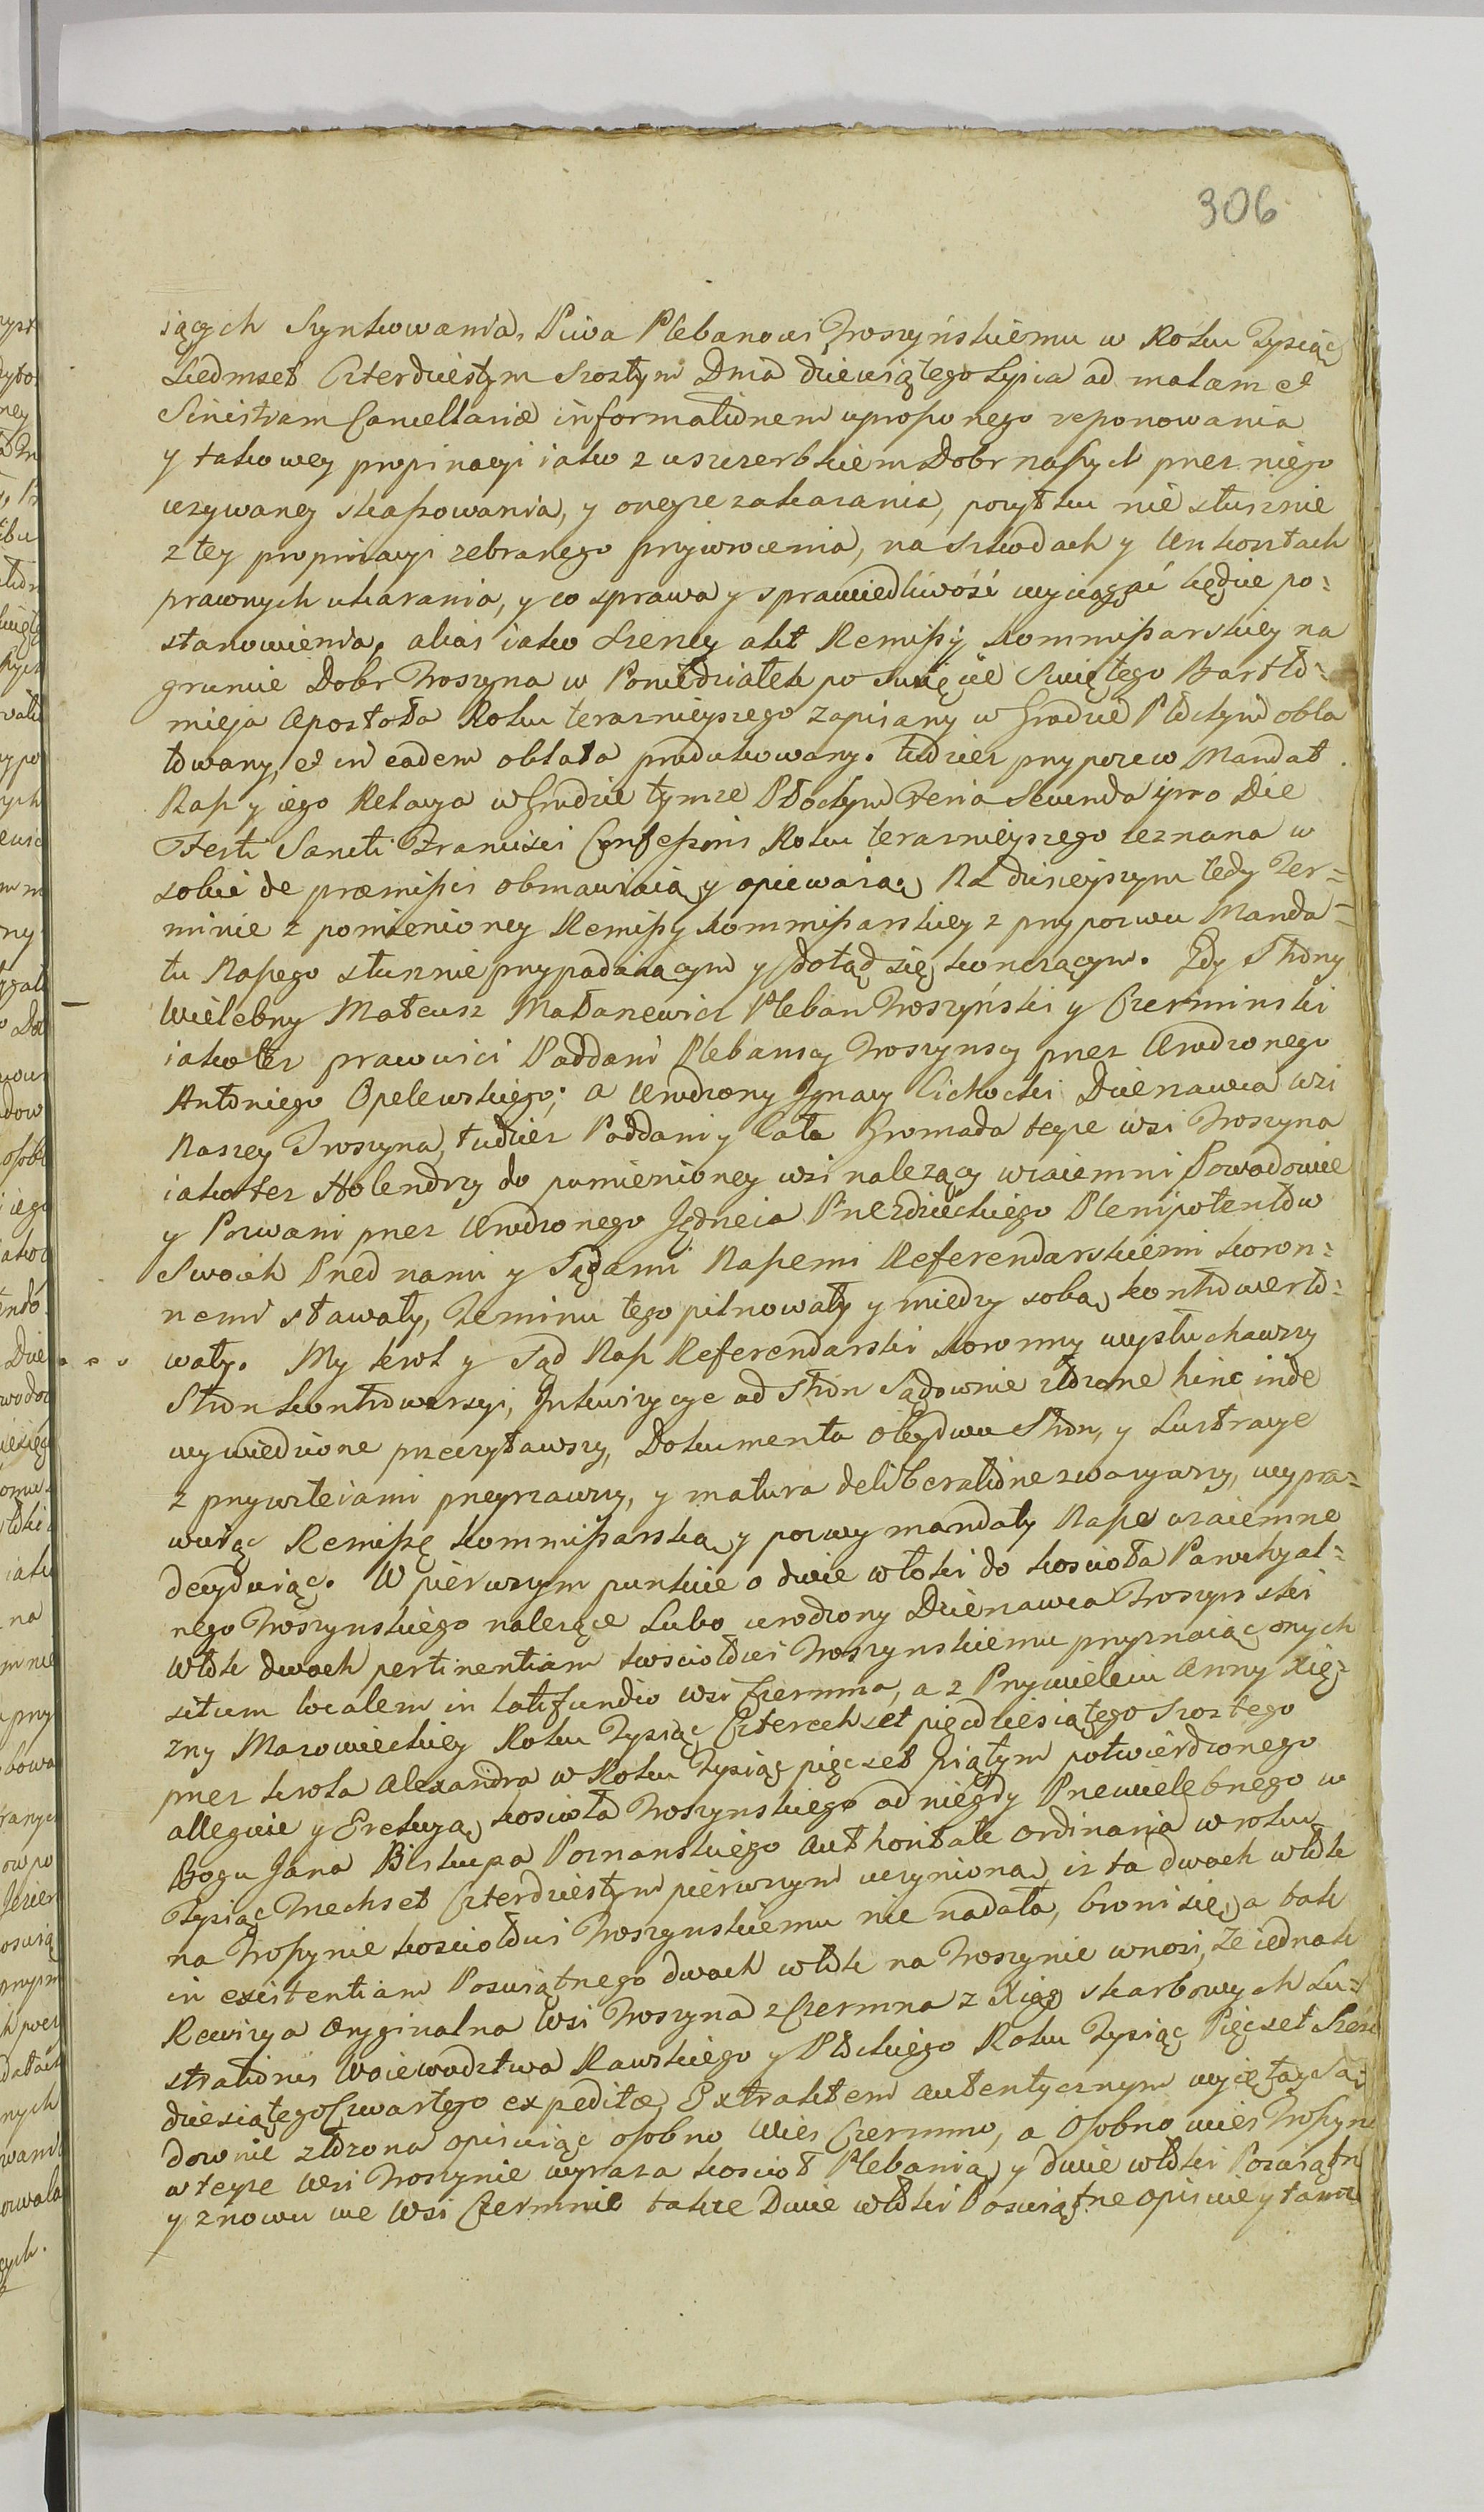 306
iących Szynkowania, Piwa Plebanowi Troszyńskiemu w Roku Tysiąc
Siedmset Czterdziestym Szostym Dnia dziewiątego Lipca ad malam et
Sinistram Cancellariæ informationem uproszonego reponowania
y takowey propinacyi iako z uszczerbkiem Dobr naszych przez niego
uzywaney skassowania, y oneyze zakazania, pozytku nie słusznie
z tey propinacyi zebranego przywrocenia, na szkodach y Unkosztach
prawnych ukarania, y co sprawa y sprawiedliwość wyciągać będzie po=
stanowienia, alias iako szerzey akt Remissy kommissarskiey na
gruncie Dobr Troszyna w Poniedziałek po Swięcie Swiętego Bartło=
mieja Apostoła Roku terazneyszego zapisany w Grodzie Płockim obla
towany, et in eadem oblata produkowany. tudziez przypozew Mandat
Nasz y iego Relacya w Grodzie tymze Płockim Feria Secunda ipso Die
Festi Sancti Francisci Confessoris Roku teraznieyszego zeznana w
sobie de præmissis obmawiaią y opiewaią, Na dzisieyszym tedy Ter=
minie z pomienioney Remissy kommissarskiey z przypozwu Manda=
tu Naszego słusznie przypadaiącym y dotąd się kończącym. Gdy Strony
Wielebny Mateusz Matanewicz Pleban Troszyński y Czerminski
iakotez prawowici Poddani Plebanscy Troszynscy przez Urodzonego
Antoniego Opelewskiego; a Urodzony Ignacy Cichocki Dzierzawca wsi
Naszey Troszyna, tudziez Poddani y Cała Gromada teyze wsi Troszyna
iakotez Holendrzy do pomienioney wsi nalezący wzaiemni Powodowie
y Pozwani przez Urodzonego Jędrzeia Przezdzieckiego Plenipotentow
Swoich Przed nami y Sądami Naszemi Referendarskiemi koron=
nemi stawały, Terminu tego pilnowały y miedzy sobą kontrowerto=
wały. My krol y Sąd Nasz Referendarski koronny wysłuchawszy
Stron kontrowersyi, Inkwizycye od stron Sądownie złozone hinc inde
wywiedzione przeczytawszy, Dokumenta obydwu Stron, y Lustracye
z przywileiami przeyrzawszy, y matura deliberatione zwazywszy, wypra=
wuiąc Remissę kommissarską y pozwy mandaty Nasze wzaiemne
decyduiąc. W pierwszym punkcie o dwie włoki do kościoła Parochyal=
nego Troszynskiego nalezące Lubo urodzony Dzierzawca Troszynski
Włok dwoch pertinentiam kościołowi Troszynskiemu przyznaiąc onych
situm localem in latifundio wsi Czermna, a z Przywileiu Anny Xię=
zny Mazowieckiey Roku Tysiąc Czterechset pięcdziesiątego szostego
przez krola Alexandra w Roku Tysiąc pięcset piątym potwierdzonego
alleguie y Erekcyą kościoła Troszynskiego od niegdy Przewielebnego w
Bogu Jana Biskupa Poznanskiego Authoritate Ordinaria w roku
Tysiąc Trechset Czterdziestym pierwszym uczynioną, iz ta dwoch włok
na Troszynie kościołowi Troszynskiemu nie nadała, broni się, a tak
in existentiam Poswiątnego dwoch włok na Troszynie wnosi, Ze iednak
Rewizya Oryginalna Wsi Troszyna z Czermna z Xiąg skarbowych Lu=
strationis Woiewodztwa Rawskiego y Płockiego Roku Tysiąc Pięcset Sześć
dziesiątego Czwartego expeditæ, Extraktem autentycznym wyięta y Są=
downie złozona opisuiąc osobno Wies Czermno, a osobno wies Troszyn
w teyze Wsi Troszynie wyraza kosciół Plebanią y dwie włoki Poswiątn
y znowu we Wsi Czermnie takze Dwie włoki Poswiątne opisuie y tamze